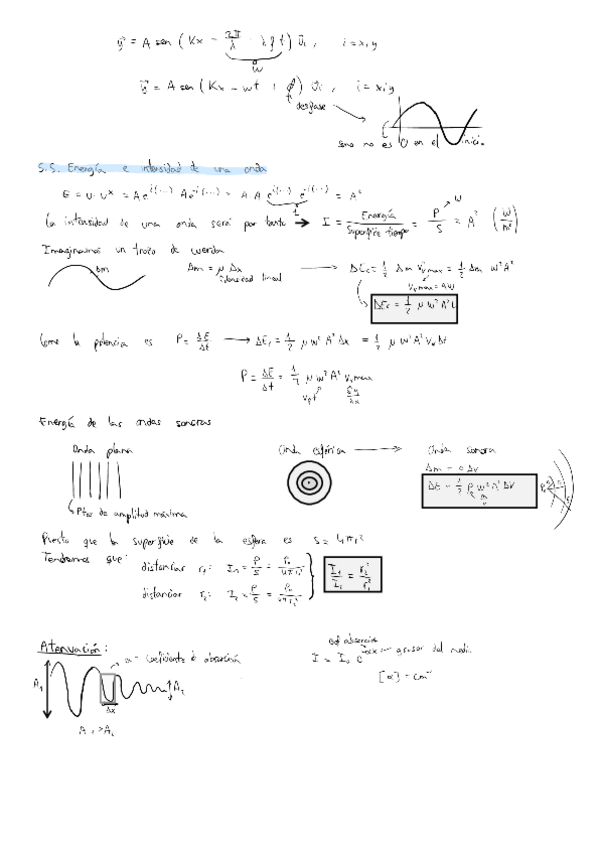 y⃗ = A sen (Kx - 2π/λ · λ f t) u⃗i, i = x, y
w
y⃗ = A sen (Kx - wt + φ) u⃗i, i = x, y
desfase
sino no es 0 en el inicio.
5.5. Energía e intensidad de una onda
E = U · U* = A e^i(...) A e^-i(...) = A · A e^i(...) e^-i(...) = A²
1
La intensidad de una onda será por tanto → I = Energía / Superficie tiempo = P/S = A² (W/m²)
Imaginamos un trozo de cuerda
Δm
Δm = μ Δx → ΔEc = 1/2 Δm v²y max = 1/2 Δm w² A²
densidad lineal
vy max = Aw
Como la potencia es P = ΔE/Δt → ΔE = 1/2 μ w² A² Δx = 1/2 μ w² A² Δt
P = ΔE/Δt = 1/2 μ w² A²
Energía de las ondas sonoras
Onda plana
Onda esférica → Onda sonora
Δm = ρ ΔV
ΔE = 1/2 ρ w² A² ΔV
Ptos de amplitud máxima
Puesto que la superficie de la esfera es S = 4πr²
Tendremos que: distancia r₁: I₁ = P/S = P₀/4πr₁²
distancia r₂: I₂ = P/S = P₀/4πr₂²
I₁/I₂ = r₂²/r₁²
Atenuación:
α - coeficiente de absorción
A₁
A₂
Δx
A₁ > A₂
coef absorción
I = I₀ e^-αx grosor del medio
[α] = cm⁻¹